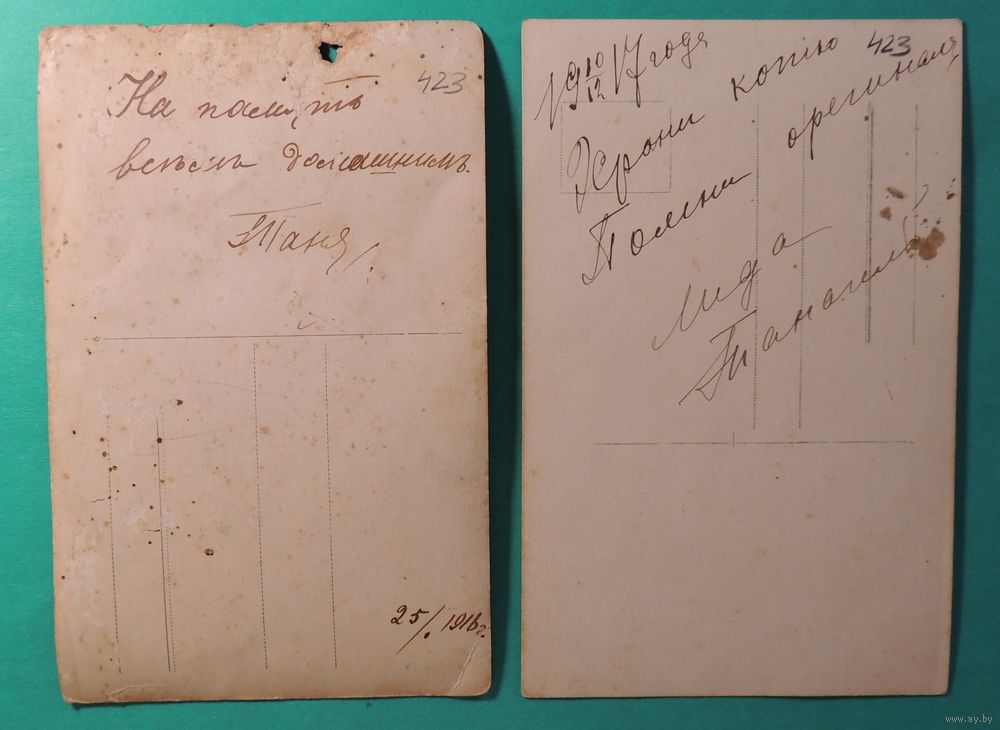 423
На память
всѣмъ домашнимъ.
Таня
25/. 1916 г.
19 10/12 17 года
423
Храни копію
Помни орегиналъ
Лида
www.ay.by